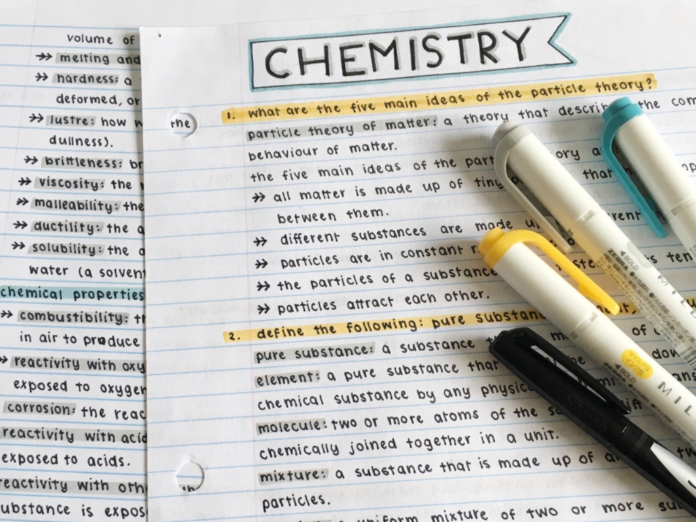 volume of
→ melting and
→ hardness: a
deformed, or
→ lustre: how
dullness).
→ brittleness: br
→ viscosity: the
→ malleability: the
→ ductility: the a
→ solubility: the a
water (a solven
chemical properties
→ combustibility: t
in air to produce
→ reactivity with oxy
exposed to oxygen
corrosion: the reac
reactivity with acid
exposed to acids.
reactivity with oth
substance is expos
the
CHEMISTRY
1. what are the five main ideas of the particle theory?
particle theory of matter: a theory that describ the com
behaviour of matter.
the five main ideas of the part ory a
→ all matter is made up of tiny that
between them.
→ different substances are made u erent
→ particles are in constant
→ the particles of a substance
→ particles attract each other.
2. define the following: pure substan
pure substance: a substance t of
element: a pure substance that dow
chemical substance by any physic
molecule: two or more atoms of the s
chemically joined together in a unit.
mixture: a substance that is made up of a
particles.
uniform mixture of two or more sub
ZEBRA
MIL